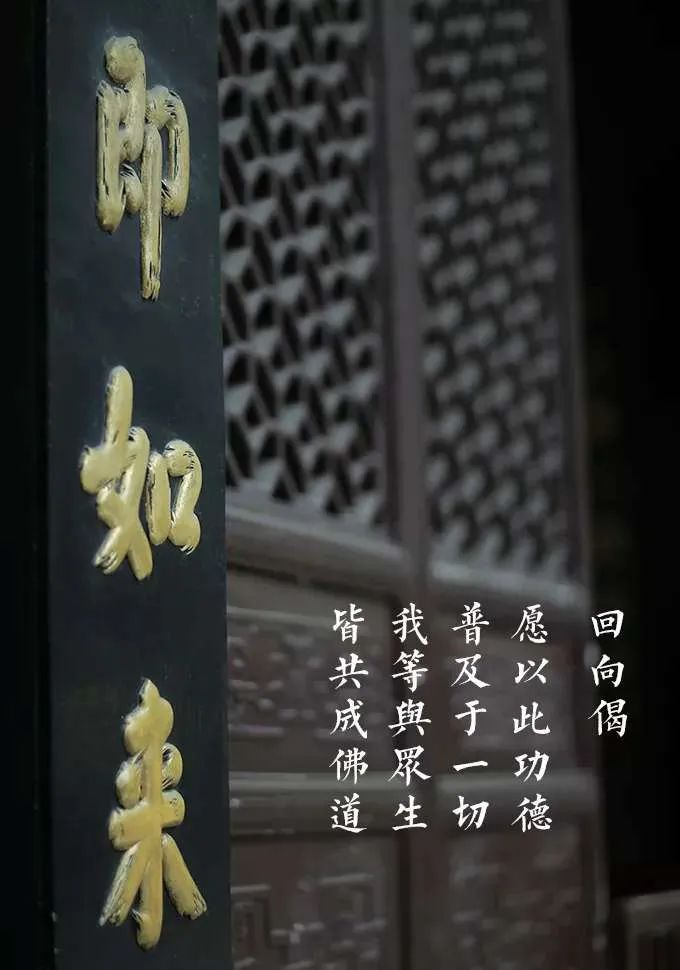 如来
回向偈
愿以此功德
普及于一切
我等與眾生
皆共成佛道